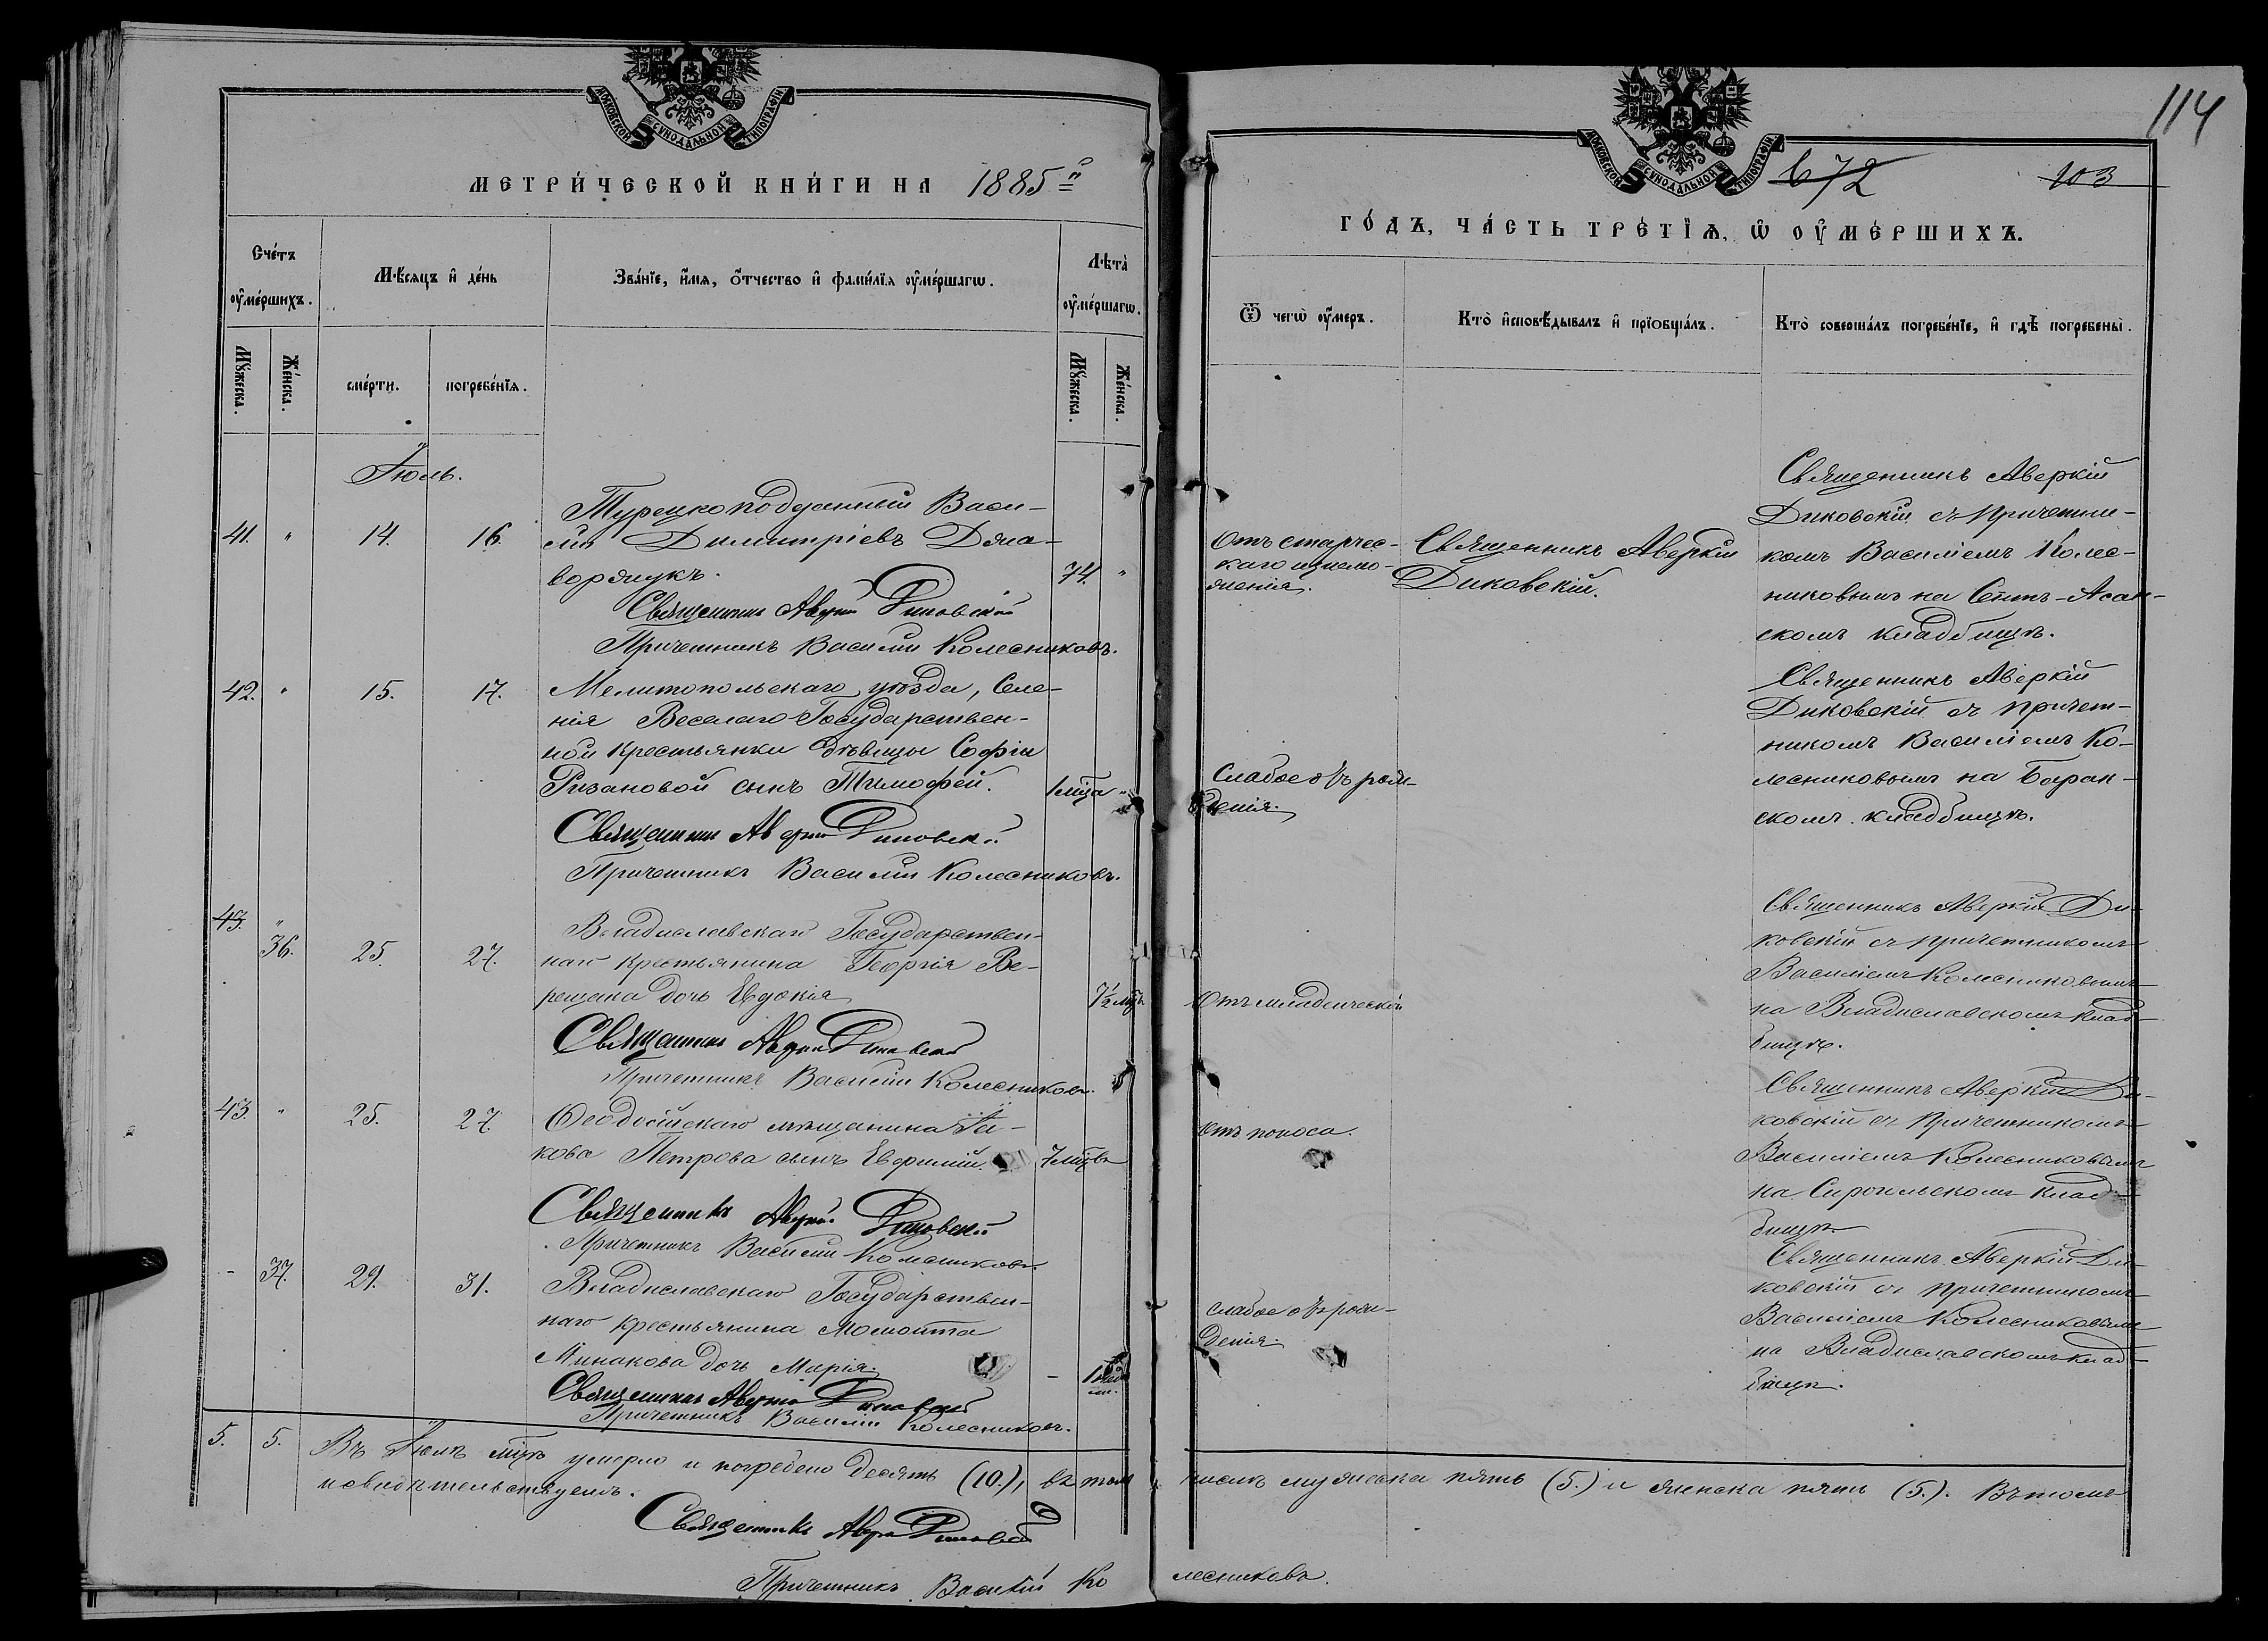 114
МОСКОВСКОЙ СѴНОДАЛЬНОЙ ТИПОГРАФІИ
МОСКОВСКОЙ СѴНОДАЛЬНОЙ ТИПОГРАФІИ
МЕТРИ́ЧЕСКОЙ КНИ́ГИ НА 1885й
672 103
ГО́ДЪ, ЧА́СТЬ ТРЕ́ТЇѦ, Ѡ ОУМЕ́РШИХЪ.
Сче́тъ оуме́ршихъ.
Мѣ́сяцъ и де́нь
Зва́нїе, и́мя, о́тчество и фами́лїя оуме́ршагѡ.
Лѣта̀ оуме́ршагѡ.
Мꙋ́жеска.
Же́нска.
сме́рти.
погребе́нїѧ.
Мꙋ́жеска.
Же́нска.
Ѿ чегѡ̀ оу́меръ.
Кто̀ исповѣ́дывалъ и прїобща́лъ.
Кто̀ соверша́лъ погребе́нїе, и гдѣ̀ погребены̀.
Іюль.
41. " 14. 16.
Турецкоподданный Васи-
лій Димитріевъ Дела-
ворянукъ. 74. "
Священникъ Аверкій Диковскій
Причетникъ Василій Колесниковъ.
Отъ старчес-
каго изнемо-
женія.
Священникъ Аверкій
Диковскій.
Священникъ Аверкій
Диковскій съ причетни-
комъ Василіемъ Колес-
никовымъ на Сеитъ-Асан-
скомъ кладбищѣ.
42. " 15. 17.
Мелитопольскаго уѣзда, Селе-
нія Веселаго Государствен-
ной крестьянки дѣвицы Софіи
Рязановой сынъ Тимофей. 1 мца "
Священникъ Аверкій Диковскій
Причетникъ Василій Колесниковъ.
Слабое отъ рож-
денія.
Священникъ Аверкій
Диковскій съ причет-
никомъ Василіемъ Ко-
лесниковымъ на Баран-
скомъ кладбищѣ.
43. " 36. 25. 27.
Владиславскаго Государствен-
наго крестьянина Георгія Ве-
рещака дочь Евдокія 7½ мцъ
Священникъ Аверкій Диковскій
Причетникъ Василій Колесниковъ.
Отъ младенческой
Священникъ Аверкій Ди-
ковскій съ причетникомъ
Василіемъ Колесниковымъ
на Владиславскомъ клад-
бищѣ.
43. " 25. 27.
Ѳеодосійскаго мѣщанина Іа-
кова Петрова сынъ Евфимій. 7 мцвъ
Священникъ Аверкій Диковскій
Причетникъ Василій Колесниковъ.
отъ поноса.
Священникъ Аверкій Ди-
ковскій съ причетникомъ
Василіемъ Колесниковымъ
на Сарокольскомъ клад-
бищѣ.
- 37. 29. 31.
Владиславскаго Государствен-
наго крестьянина Мамонта
Минакова дочь Марія. - 1 нед.
Священникъ Аверкій Диковскій
Причетникъ Василій Колесниковъ.
слабое отъ рож-
денія.
Священникъ Аверкій Ди-
ковскій съ причетникомъ
Василіемъ Колесниковымъ
на Владиславскомъ клад-
бищѣ.
5. 5. Въ Іюлѣ мцѣ умерло и погребено десять (10.), въ томъ числѣ мужеска пять (5.) и женска пять (5.). Въ томъ
и свидѣтельствуемъ.
Священникъ Аверкій Диковскій
Причетникъ Василій Колесниковъ.